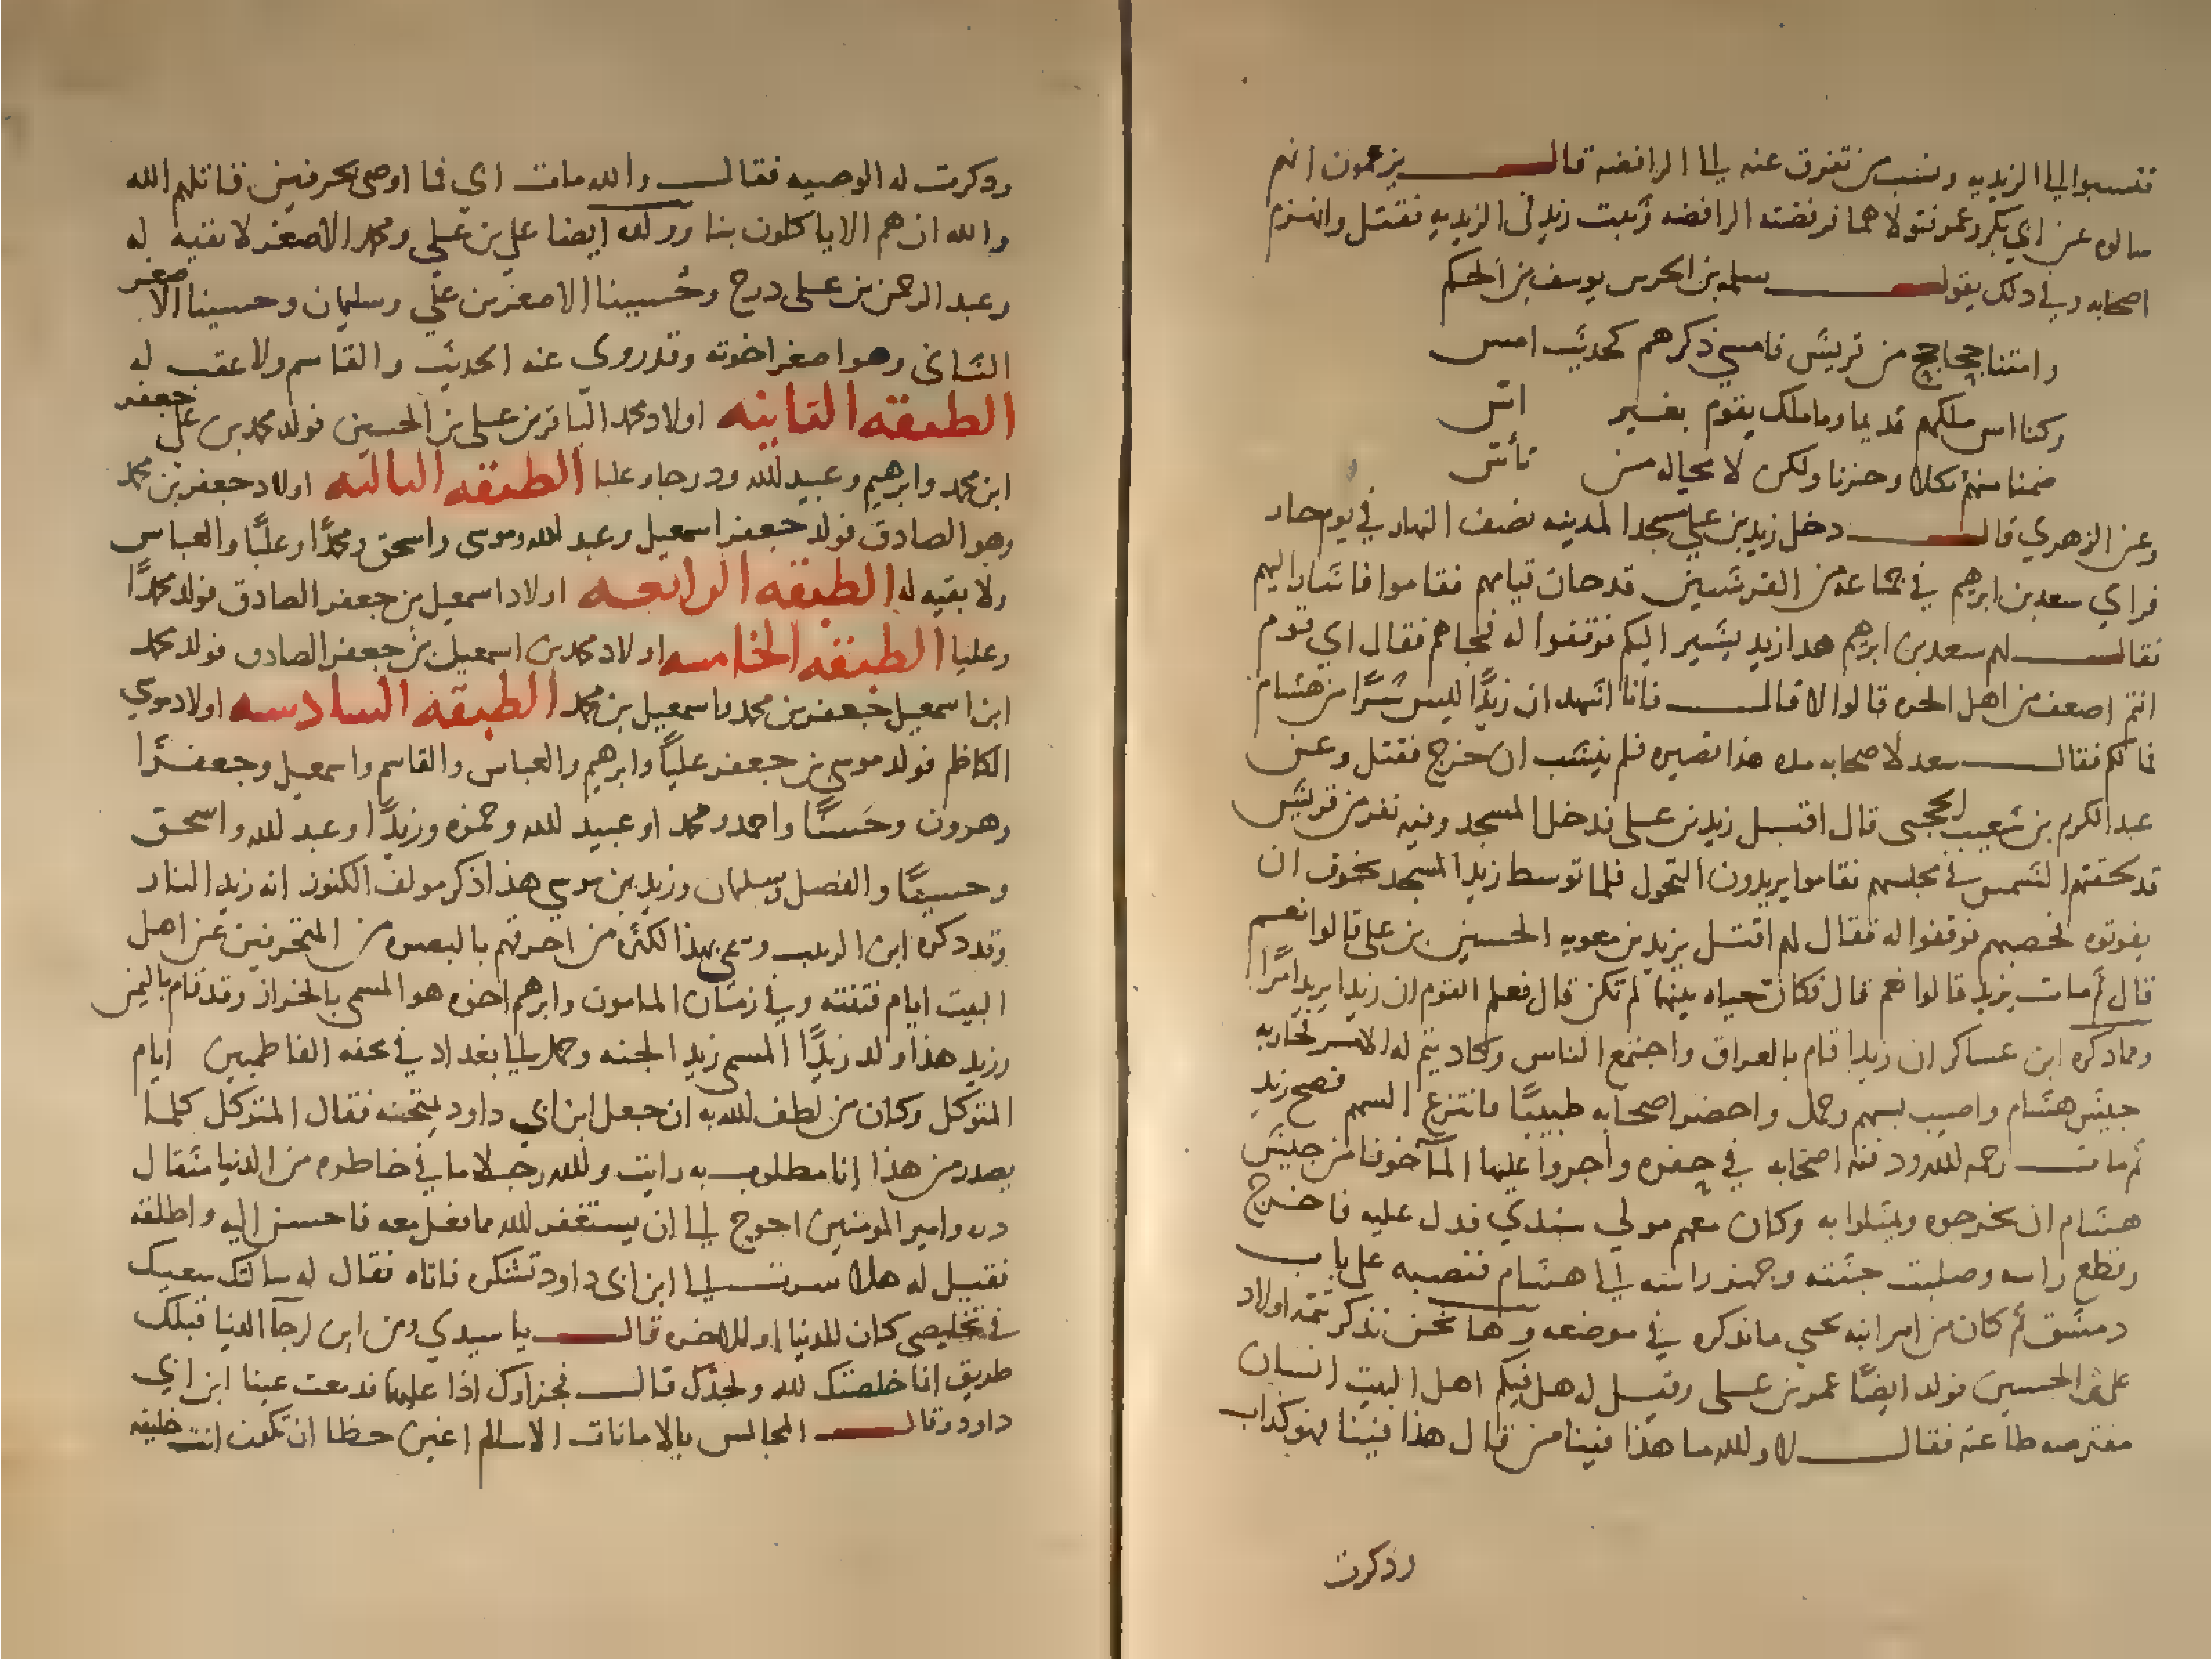 فنسبوا الي الزيديه ونسب من تفرق عنه الي الرافضه قال يزعمون انهم
سالوه عن ابي بكر وعمر فتولاهما فرفضته الرافضه وثبت زيد في الزيديه فقتل وانهزم
اصحابه وفي ذلك يقول سلمه بن الحر بن يوسف بن الحكم
وامتنا جحاجح من قريش فامسي ذكرهم كحديث امس
وكنا اس ملكهم قديما وما ملك يقوم بغير اس
ضمنا منهم نكلا وحزنا ولكن لا محاله من تأس
وعن الزهري قال دخل زيد بن علي مسجد المدينه نصف النهار في يوم حار
فراي سعد بن ابرهيم في جماعه من القرشيين قد حان قيامهم فقاموا فاشار اليهم
فقال لهم سعد بن ابرهيم هذا زيد يشير اليكم فوقفوا له فجاهم فقال اي قوم
انتم اضعف من اهل الحره قالوا لا قال فانا اشهد ان يزيدًا ليس شرًا من هشام
فما لكم فقال سعد لاصحابه مده هذا قصيره فلم ينشب ان خرج فقتل وعن
عبد الكريم بن شعيب الحجبى قال اقبل زيد بن على فدخل المسجد وفيه نفر من قريش
قد لحقتهم الشمس في مجلسهم فقاموا يريدون التحول فلما توسط زيد المسجد تخوف ان
يفوتوه فحصبهم فوقفوا له فقال لهم اقتل يزيد بن معويه الحسين بن على قالوا نعم
قال ثم مات يزيد قالوا نعم قال فكان حياه بينهما لم تكن قال فعلم القوم ان زيدا يريد امرًا
ومما ذكره ابن عساكر ان زيدا قام بالعراق واجتمع الناس وكاد يتم له الامر فحاربه
جيش هشام واصيب بسهم وحمل واحضر اصحابه طبيبًا فانتزع السهم فصح زيد
ثم مات رحمه الله ودفنه اصحابه في حفره واجروا عليها المآ خوفا من جيش
هشام ان يخرجوه ويمثلوا به وكان معهم مولي سندي فدل عليه فاخرج
وقطع راسه وصلبت جثته وجهز راسه الي هشام فنصبه على باب
دمشق ثم كان من امر ابنه يحيى ما نذكره في موضعه وها نحن نذكر تتمه اولاد
علي بن الحسين فولد ايضًا عمر بن على وقيل له هل فيكم اهل البيت انسان
مفترضه طاعته فقال لا والله ما هذا فينا من قال هذا فينا فهو كذاب
وذكرت
وذكرت له الوصيه فقال والله مات ابي فما اوصى بحرفين قاتلهم الله
والله ان هم الا ياكلون بنا وولد ايضا علي بن علي ومحمد الاصغر لا بقيه له
وعبد الرحمن بن على درج وحُسينا الاصغر بن علي وسليمان وحسينا الاصغر
الثانى وهو اصغر اخوته وقد روي عنه الحديث والقاسم ولا عقب له
الطبقه الثانيه اولاد محمد الباقر بن على بن الحسين فولد محمد بن على جعفر
ابن محمد وابرهيم وعبيد الله ودرجا وعليا الطبقه الثالثه اولاد جعفر بن محمد
وهو الصادق فولد جعفر اسمعيل وعبد الله وموسى واسحق ومحمدًا وعليًا والعباس
ولا بقيه له الطبقه الرابعه اولاد اسمعيل بن جعفر الصادق فولد محمدًا
وعليا الطبقه الخامسه اولاد محمد بن اسمعيل بن جعفر الصادق فولد محمد
ابن اسمعيل جعفر بن محمد واسمعيل بن محمد الطبقه السادسه اولاد موسي
الكاظم فولد موسى بن جعفر عليًا وابرهيم والعباس والقاسم واسمعيل وجعفرًا
وهرون وحَسنًا واحمد ومحمد او عبيد الله وحمزه وزيدًا وعبد الله واسحق
وحسينًا والفضل وسليمان وزيد بن موسي هذا ذكر مولف الكنوز انه زيد النار
وقد ذكره ابن وسمي بهذا لكثره من احرقهم بالبصره من المنحرفين عن اهل
البيت ايام فتنته وفي زمان المامون وابرهيم اخوه هو المسمى بالخراز وقد قام باليمن
وزيد هذا ولد زيدًا المسمى زيد الجنه وحمل الي بغداد في محفه الفاطميين ايام
المتوكل وكان من لطف الله به ان جعل ابن ابي داود يمتحنه فقال المتوكل كلما
يصدر من هذا انا مطلوب به رايت والله رجلا ما في خاطره من الدنيا مثقال
ذره وامير المومنين احوج الي ان يستغفر الله مما فعل معه فاحسن اليه واطلقه
فقيل له هلا سرت الي ابن ابى داود تشكره فاتاه فقال له سالتك سعيك
في تخليصى كان للدنيا او للاخره قال يا سيدي ومن اين لرجآ الدنيا قبلك
طريق انا خلصتك لله ولجدك قال فجزاوك اذا عليهما فدمعت عينا ابن ابي
داود وقال المجالس بالامانات الا سالم اعين حظا ان تكون انت خليفه